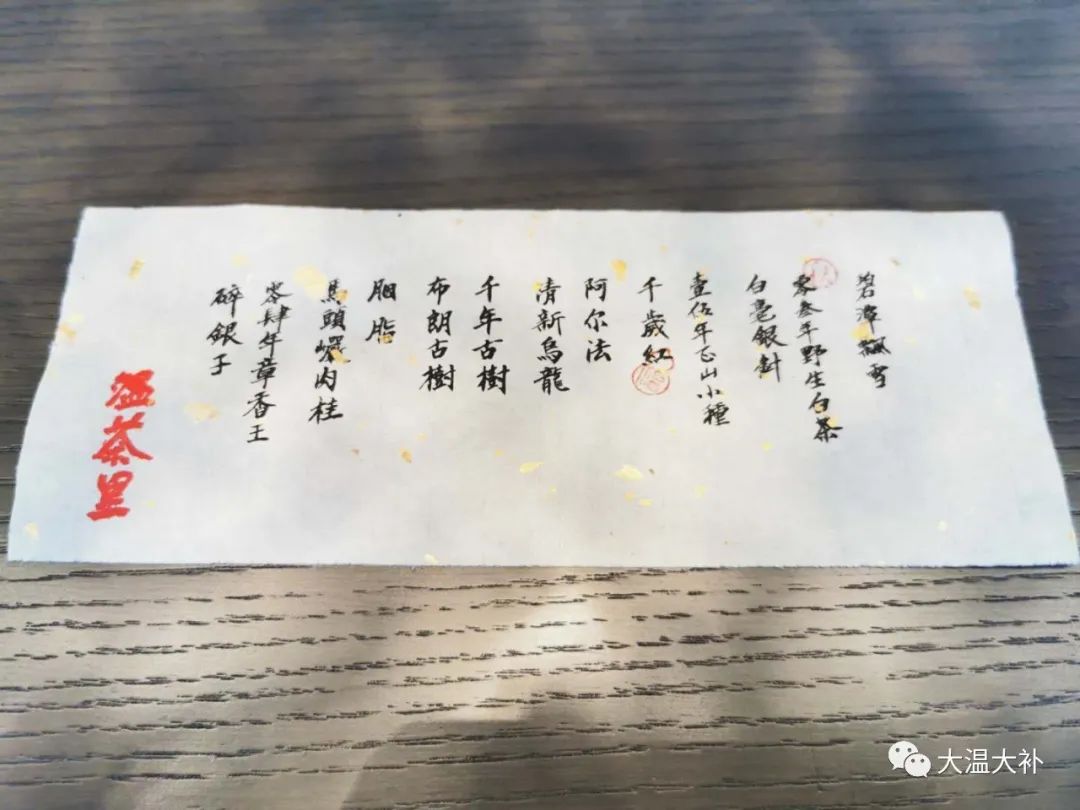 碧潭飄雪
零叁年野生白茶
白毫銀針
壹伍年正山小種
千歲紅
阿尔法
清新烏龍
千年古樹
布朗古樹
胭脂
馬頭巖肉桂
零肆年章香王
碎銀子
温茶里
大温大补